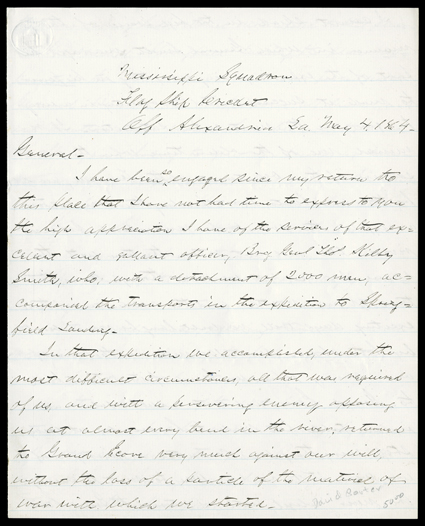 Mississippi Squadron
Flag Ship Cricket
Off Alexandria La. May 4, 1864.
General-
I have been so engaged since my return to
this place that I have not had time to express to you
the high appreciation I have of the services of that ex-
cellent and gallant officer, Brig Genl Tho. Kilby
Smith, who, with a detachment of 2000 men, ac-
companied the transports in the expedition to Spring-
field Landing-
In that expedition we accomplished, under the
most difficult circumstances, all that was required
of us, and with a persevering enemy opposing
us at almost every bend in the river, returned
to Grand Ecore very much against our will,
without the loss of a particle of the material of
war with which we started-
David D. Porter
5000